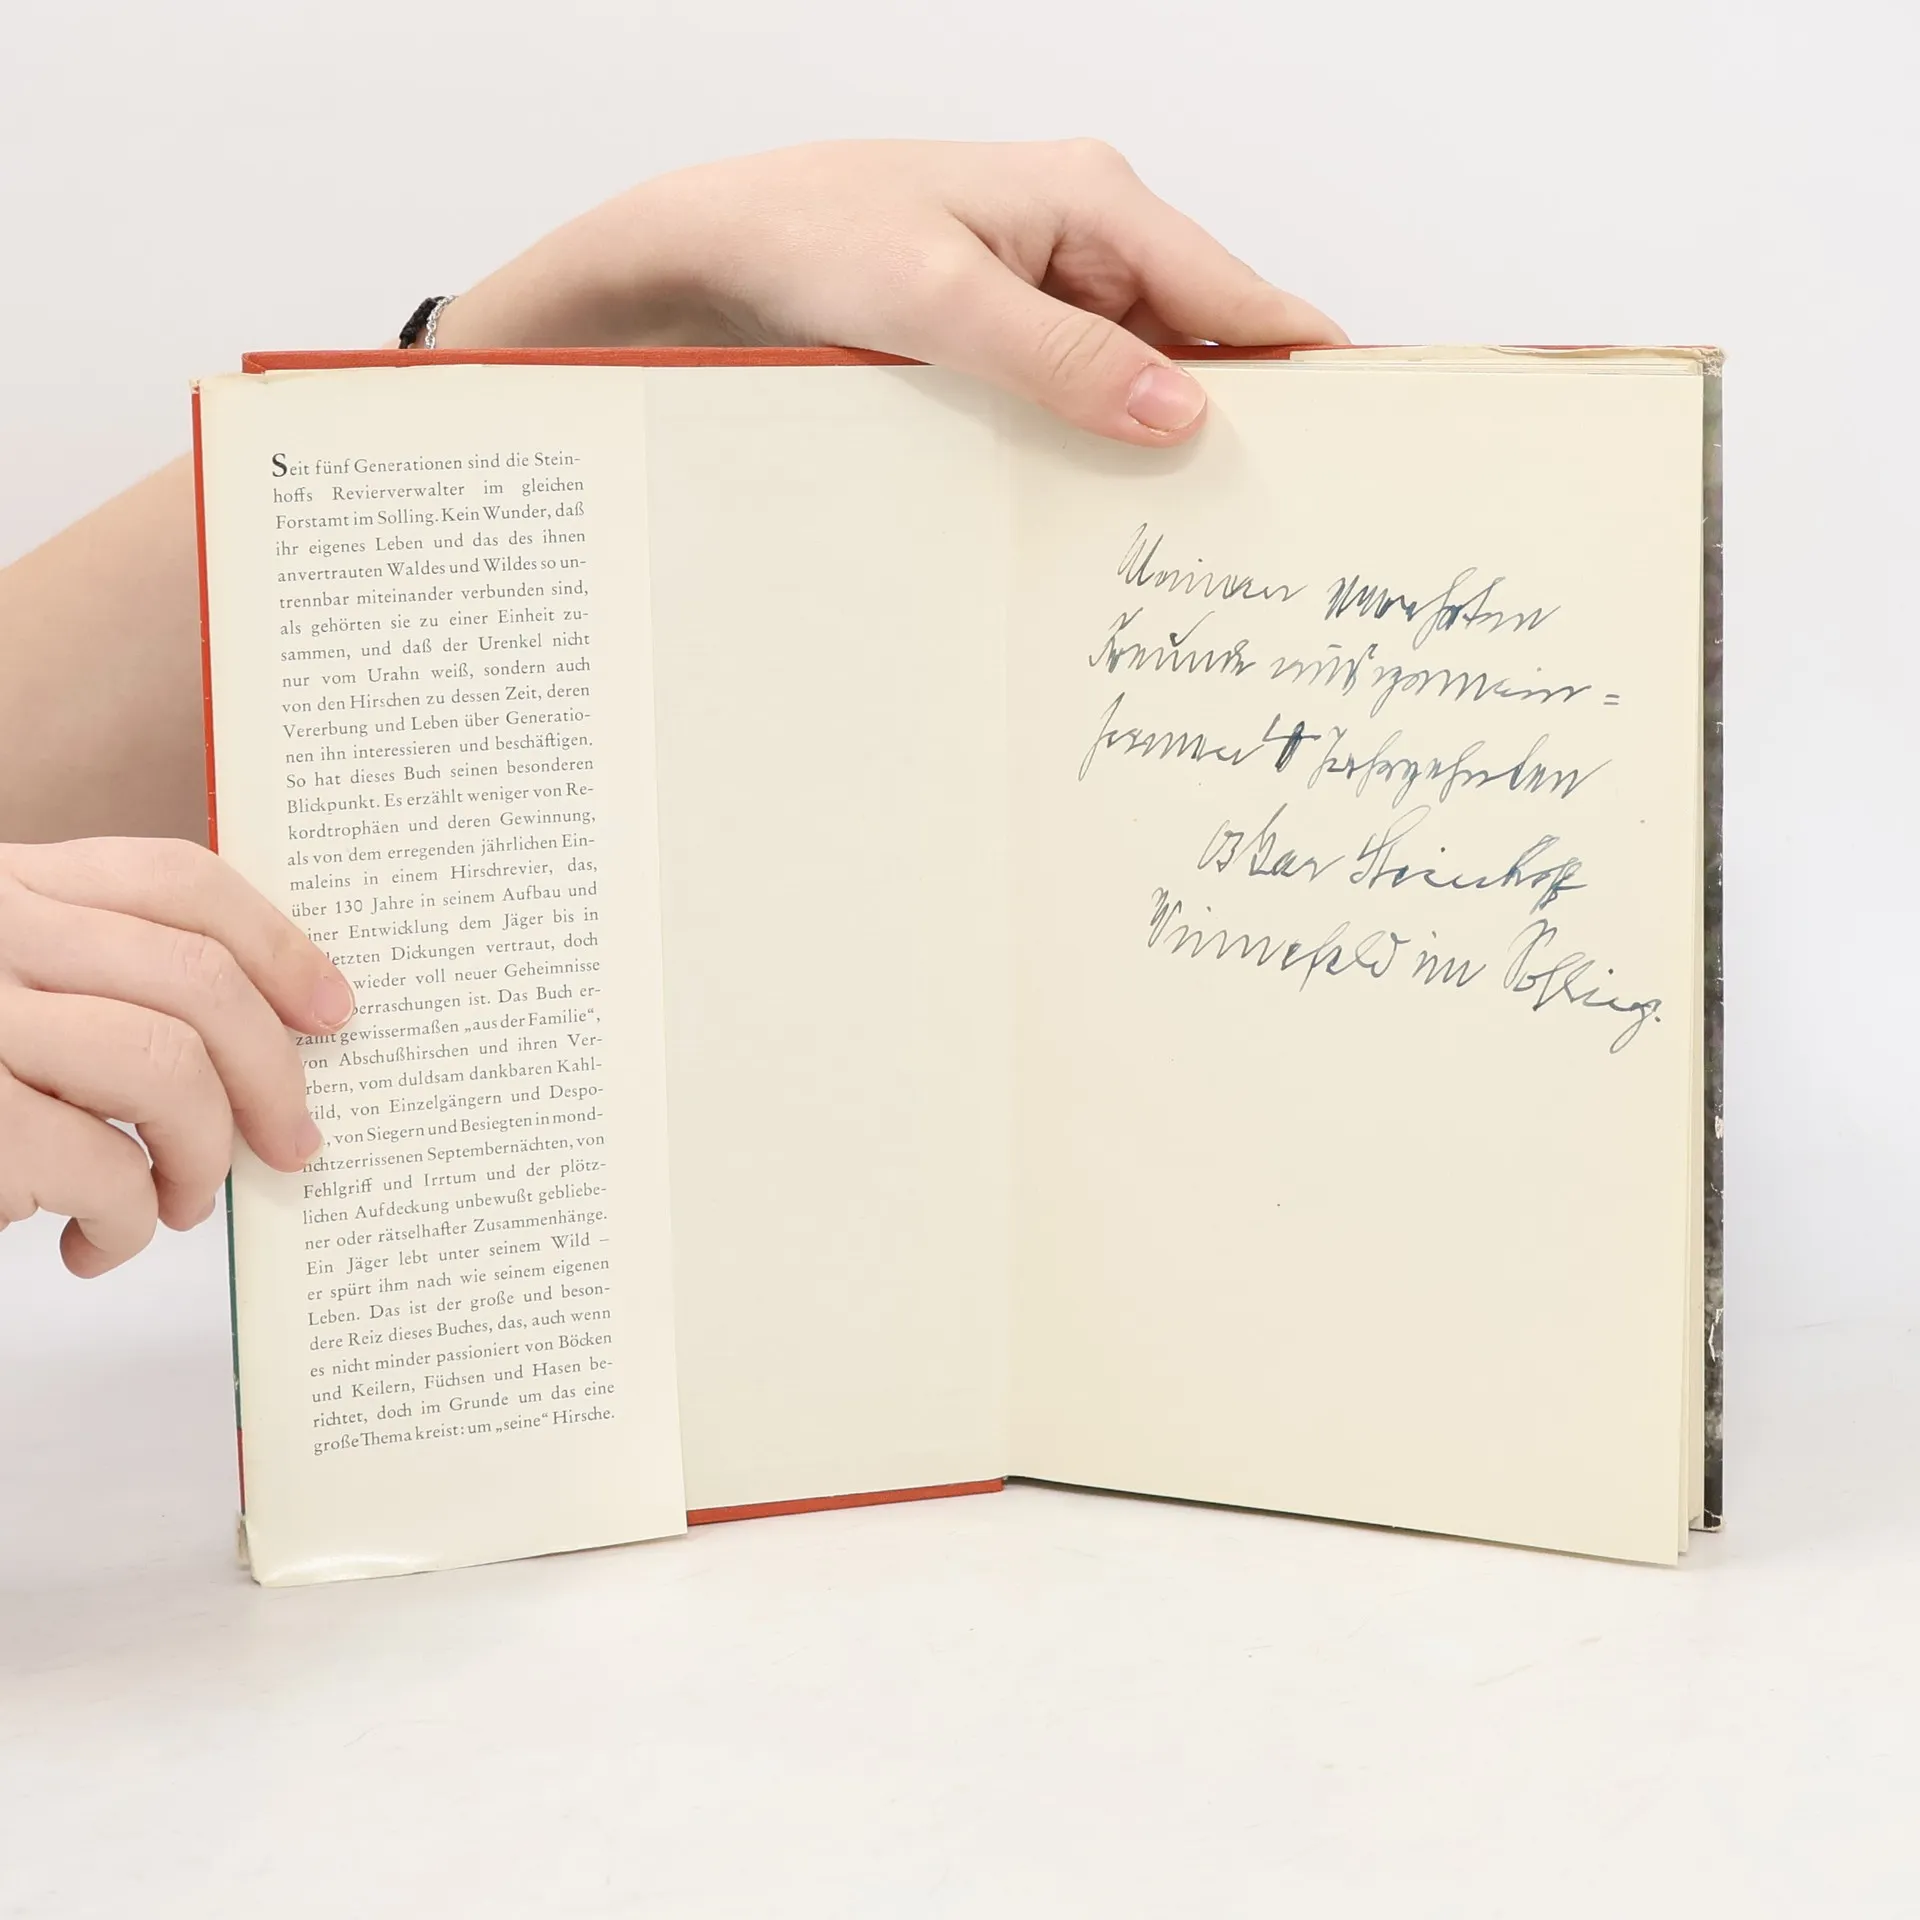 Seit fünf Generationen sind die Stein-
hoffs Revierverwalter im gleichen
Forstamt im Solling. Kein Wunder, daß
ihr eigenes Leben und das des ihnen
anvertrauten Waldes und Wildes so un-
trennbar miteinander verbunden sind,
als gehörten sie zu einer Einheit zu-
sammen, und daß der Urenkel nicht
nur vom Urahn weiß, sondern auch
von den Hirschen zu dessen Zeit, deren
Vererbung und Leben über Generatio-
nen ihn interessieren und beschäftigen.
So hat dieses Buch seinen besonderen
Blickpunkt. Es erzählt weniger von Re-
kordtrophäen und deren Gewinnung,
als von dem erregenden jährlichen Ein-
maleins in einem Hirschrevier, das,
über 130 Jahre in seinem Aufbau und
iner Entwicklung dem Jäger bis in
letzten Dickungen vertraut, doch
wieder voll neuer Geheimnisse
berraschungen ist. Das Buch er-
zählt gewissermaßen „aus der Familie“,
von Abschußhirschen und ihren Ver-
rbern, vom duldsam dankbaren Kahl-
ild, von Einzelgängern und Despo-
, von Siegern und Besiegten in mond-
ichtzerrissenen Septembernächten, von
Fehlgriff und Irrtum und der plötz-
lichen Aufdeckung unbewußt gebliebe-
ner oder rätselhafter Zusammenhänge.
Ein Jäger lebt unter seinem Wild –
er spürt ihm nach wie seinem eigenen
Leben. Das ist der große und beson-
dere Reiz dieses Buches, das, auch wenn
es nicht minder passioniert von Böcken
und Keilern, Füchsen und Hasen be-
richtet, doch im Grunde um das eine
große Thema kreist: um „seine“ Hirsche.
Meinem verehrten
Freunde aus gemein=
samen 4 Jahrzehnten
Oskar Steinhoff
Winnefeld im Solling.